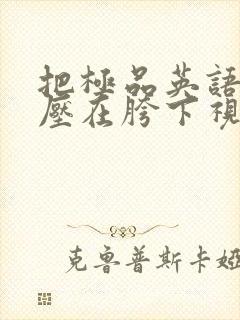 把極品英語
壓在胯下視
克魯普斯卡婭